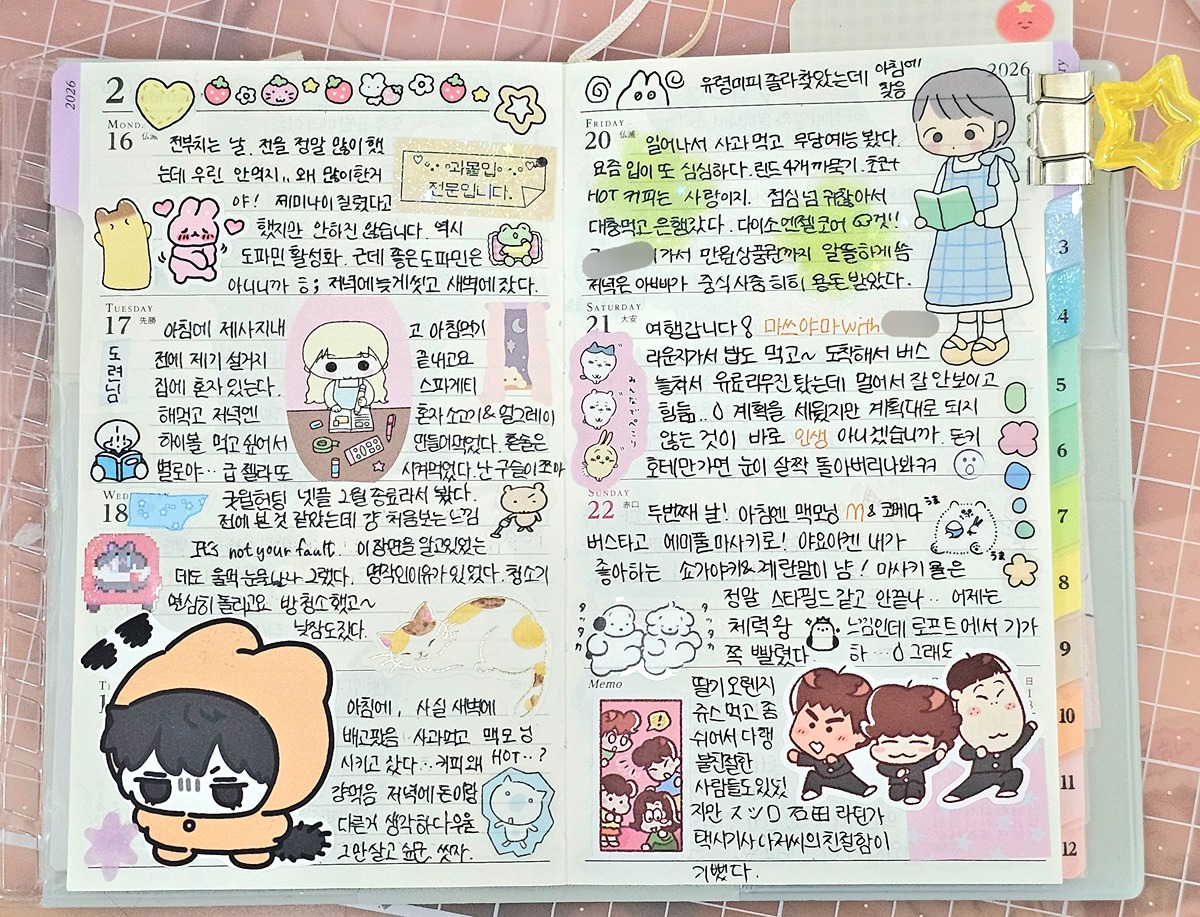 2026
2
MOND
16 仏滅
전부치는 날. 전을 정말 많이 했
는데 우린 안먹지,, 왜 많이한거
야! 제미나이 질렀다고
했지만 안하진 않습니다. 역시
도파민 활성화. 근데 좋은도파민은
아니니까 ㅎ; 저녁에늦게씻고 새벽에잤다.
과몰입
전문입니다.
TUESDAY
17 先勝
도련님
아침에 제사지내고 아침먹기
전에 제기 설거지 끝내고요
집에 혼자 있는다. 스파게티
해먹고 저녁엔 혼자소고기&얼그레이
하이볼 먹고 싶어서 만들어먹었다. 혼술은
별로야‥ 급 젤라또 시켜먹었다. 난 구슬이쪼아
WED
18
굿윌헌팅 넷플 2월 종료라서 봤다.
전에 본 것 같았는데 걍 처음보는느낌
It's not your fault. 이장면을 알고있었는
데도 울먹 눈물났나 그랬다. 명작인이유가있었다. 청소기
열심히 돌리고요 방청소했고~
낮잠도잤다.
아침에, 사실 새벽에
배고팠음 사과먹고 맥모닝
시키고 샀다‥커피왜 HOT‥?
걍먹음 저녁에돈이랑
다른거 생각하다우울
그만살고 싶군. 씻자.
유령미피 졸라찾았는데 아침에
찾음
2026
FRIDAY
20 仏滅
일어나서 사과먹고 무당예능 봤다.
요즘 입이 또 심심하다. 린드 4개 까묵기. 초코+
HOT 커피는 사랑이지. 점심넘 귀찮아서
대충먹고 은행갔다. 다이소엔젤코어 겟!!
가서 만원상품권까지 알뜰하게 씀
저녁은 아빠가 중식사줌 히히 용돈받았다.
SATURDAY
21 大安
여행갑니다 마쓰야마 with
라운지가서 밥도 먹고~ 도착해서 버스
놓쳐서 유료리무진 탔는데 멀어서 잘 안보이고
힘듦.. 계획을 세웠지만 계획대로 되지
않는 것이 바로 인생 아니겠습니까. 돈키
호테만가면 눈이 살짝 돌아버리나와ㅋㅋ
みんなでぺこり
SUNDAY
22 赤口
두번째 날! 아침엔 맥모닝 M & 코메다
버스타고 에미플마사키로! 야요이켄 내가
좋아하는 소가야키&계란말이 냠! 마사키 몰은
정말 스타필드 같고 안끝나‥ 어제는
체력왕 느낌인데 로프트에서 기가
쪽 빨렸다. 하… 그래도
うま
うま
Memo
딸기오렌지
쥬스먹고 좀
쉬어서 다행
불친절한
사람들도있었
지만 スツロ 石田 라던가
택시기사아저씨의친절함이
기뻤다.
3
4
5
6
7
8
9
10
11
12